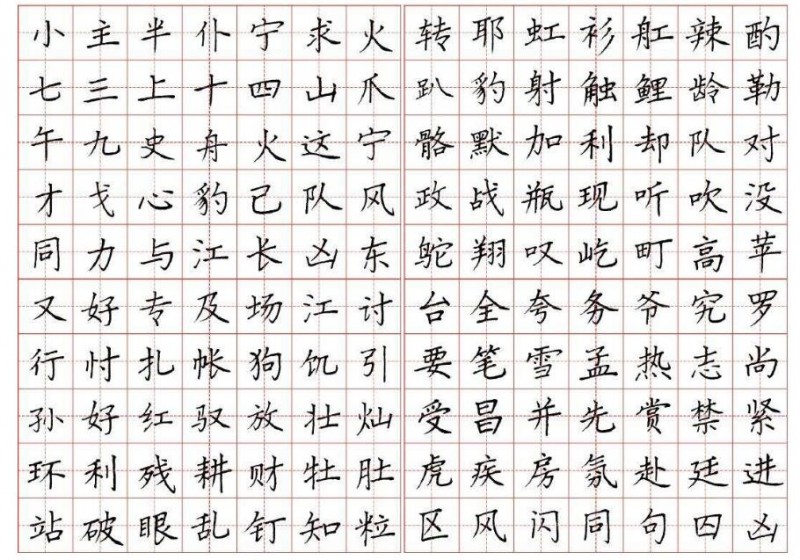 小主半仆宁求火 转耶虹衫舡辣酌
七三上十四山爪 趴豹射触鲤龄勒
午九史舟火这宁 骼默加利却队对
才戈心豹己队风 政战瓶现听吹没
同力与江长凶东 鸵翔叹屹町高苹
又好专及场江讨 台全夸务爷究罗
行忖扎帐狗饥引 要笔雪孟热志尚
孙好红驭放壮灿 受昌并先赏禁紧
环利残耕财牡肚 虎疾房氛赴廷进
站破眼乱钉知粒 区风闪同句囚凶